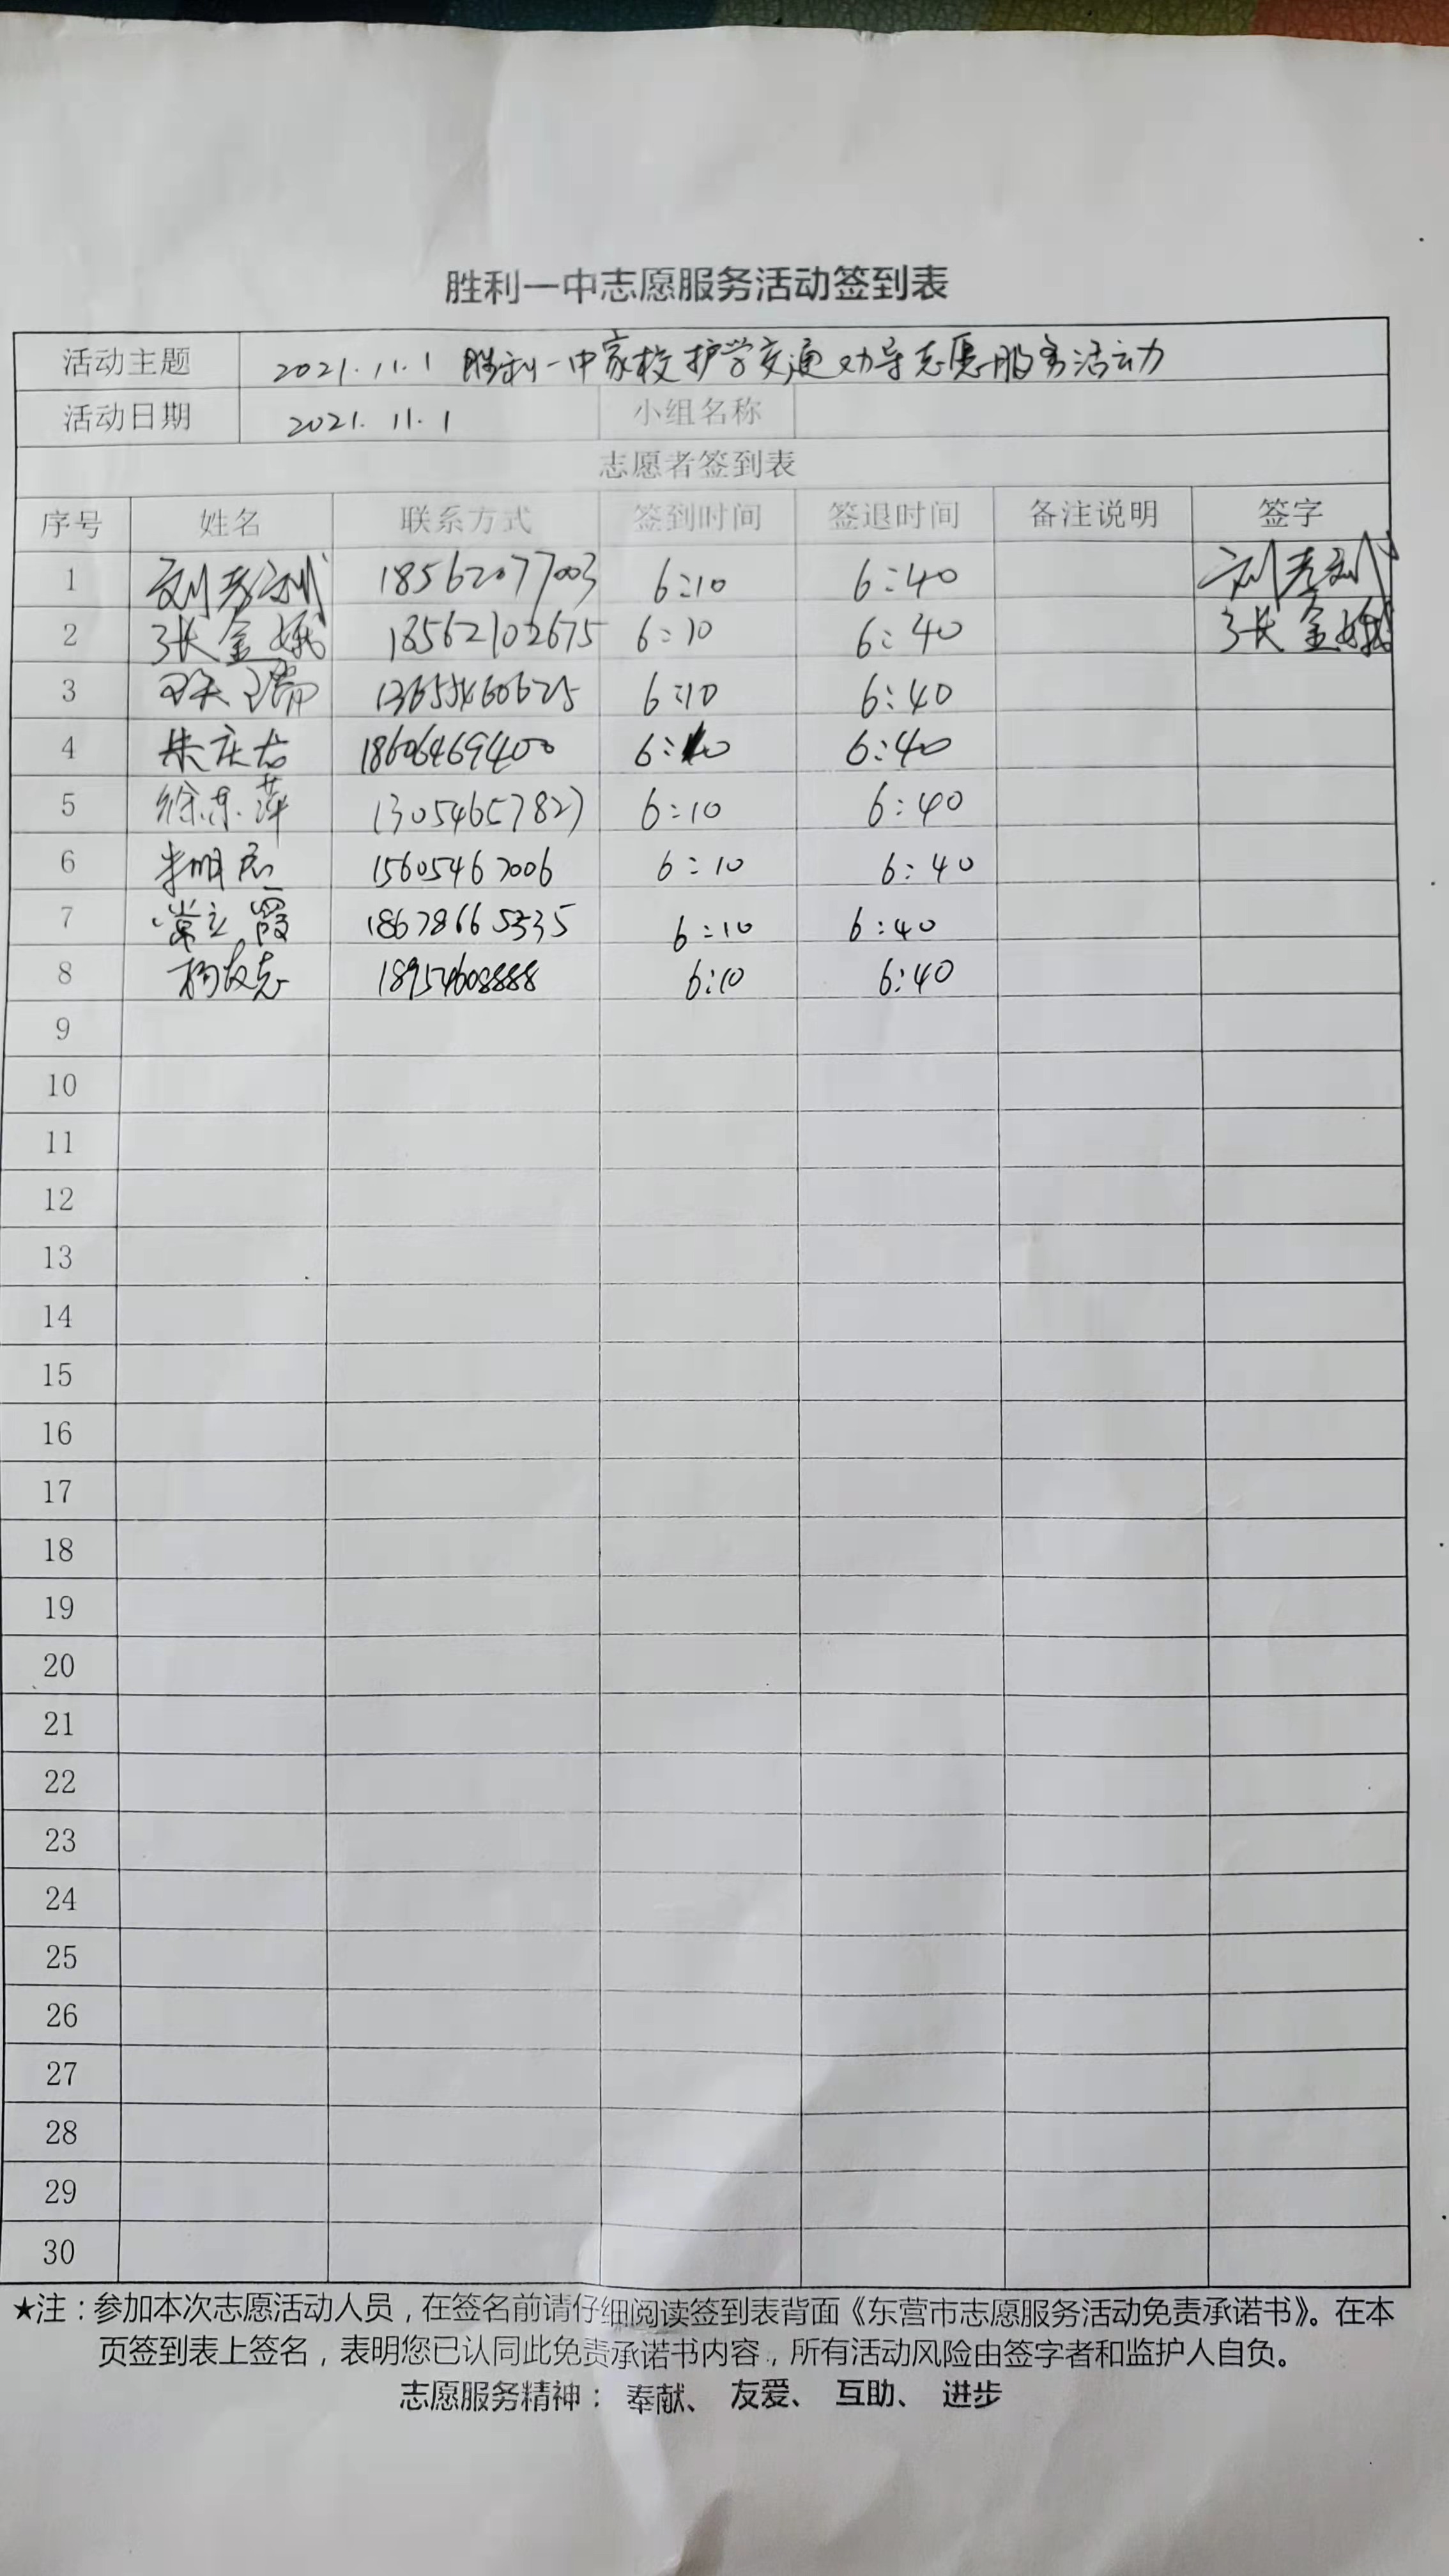 胜利一中志愿服务活动签到表
活动主题 2021.11.1 胜利一中家校护学交通劝导志愿服务活动
活动日期 2021.11.1 小组名称
志愿者签到表
序号 姓名 联系方式 签到时间 签退时间 备注说明 签字
1 18562077003 6:10 6:40
2 张金娥 18562102675 6:10 6:40 张金娥
3 6:10 6:40
4 18606469400 6:40
5 徐东萍 13054657827 6:10 6:40
6 15605467006 6:10 6:40
7 常立霞 18678665335 6:10 6:40
8 18954608888 6:10 6:40
9
10
11
12
13
14
15
16
17
18
19
20
21
22
23
24
25
26
27
28
29
30
★注：参加本次志愿活动人员，在签名前请仔细阅读签到表背面《东营市志愿服务活动免责承诺书》。在本
页签到表上签名，表明您已认同此免责承诺书内容，所有活动风险由签字者和监护人自负。
志愿服务精神： 奉献、 友爱、 互助、 进步